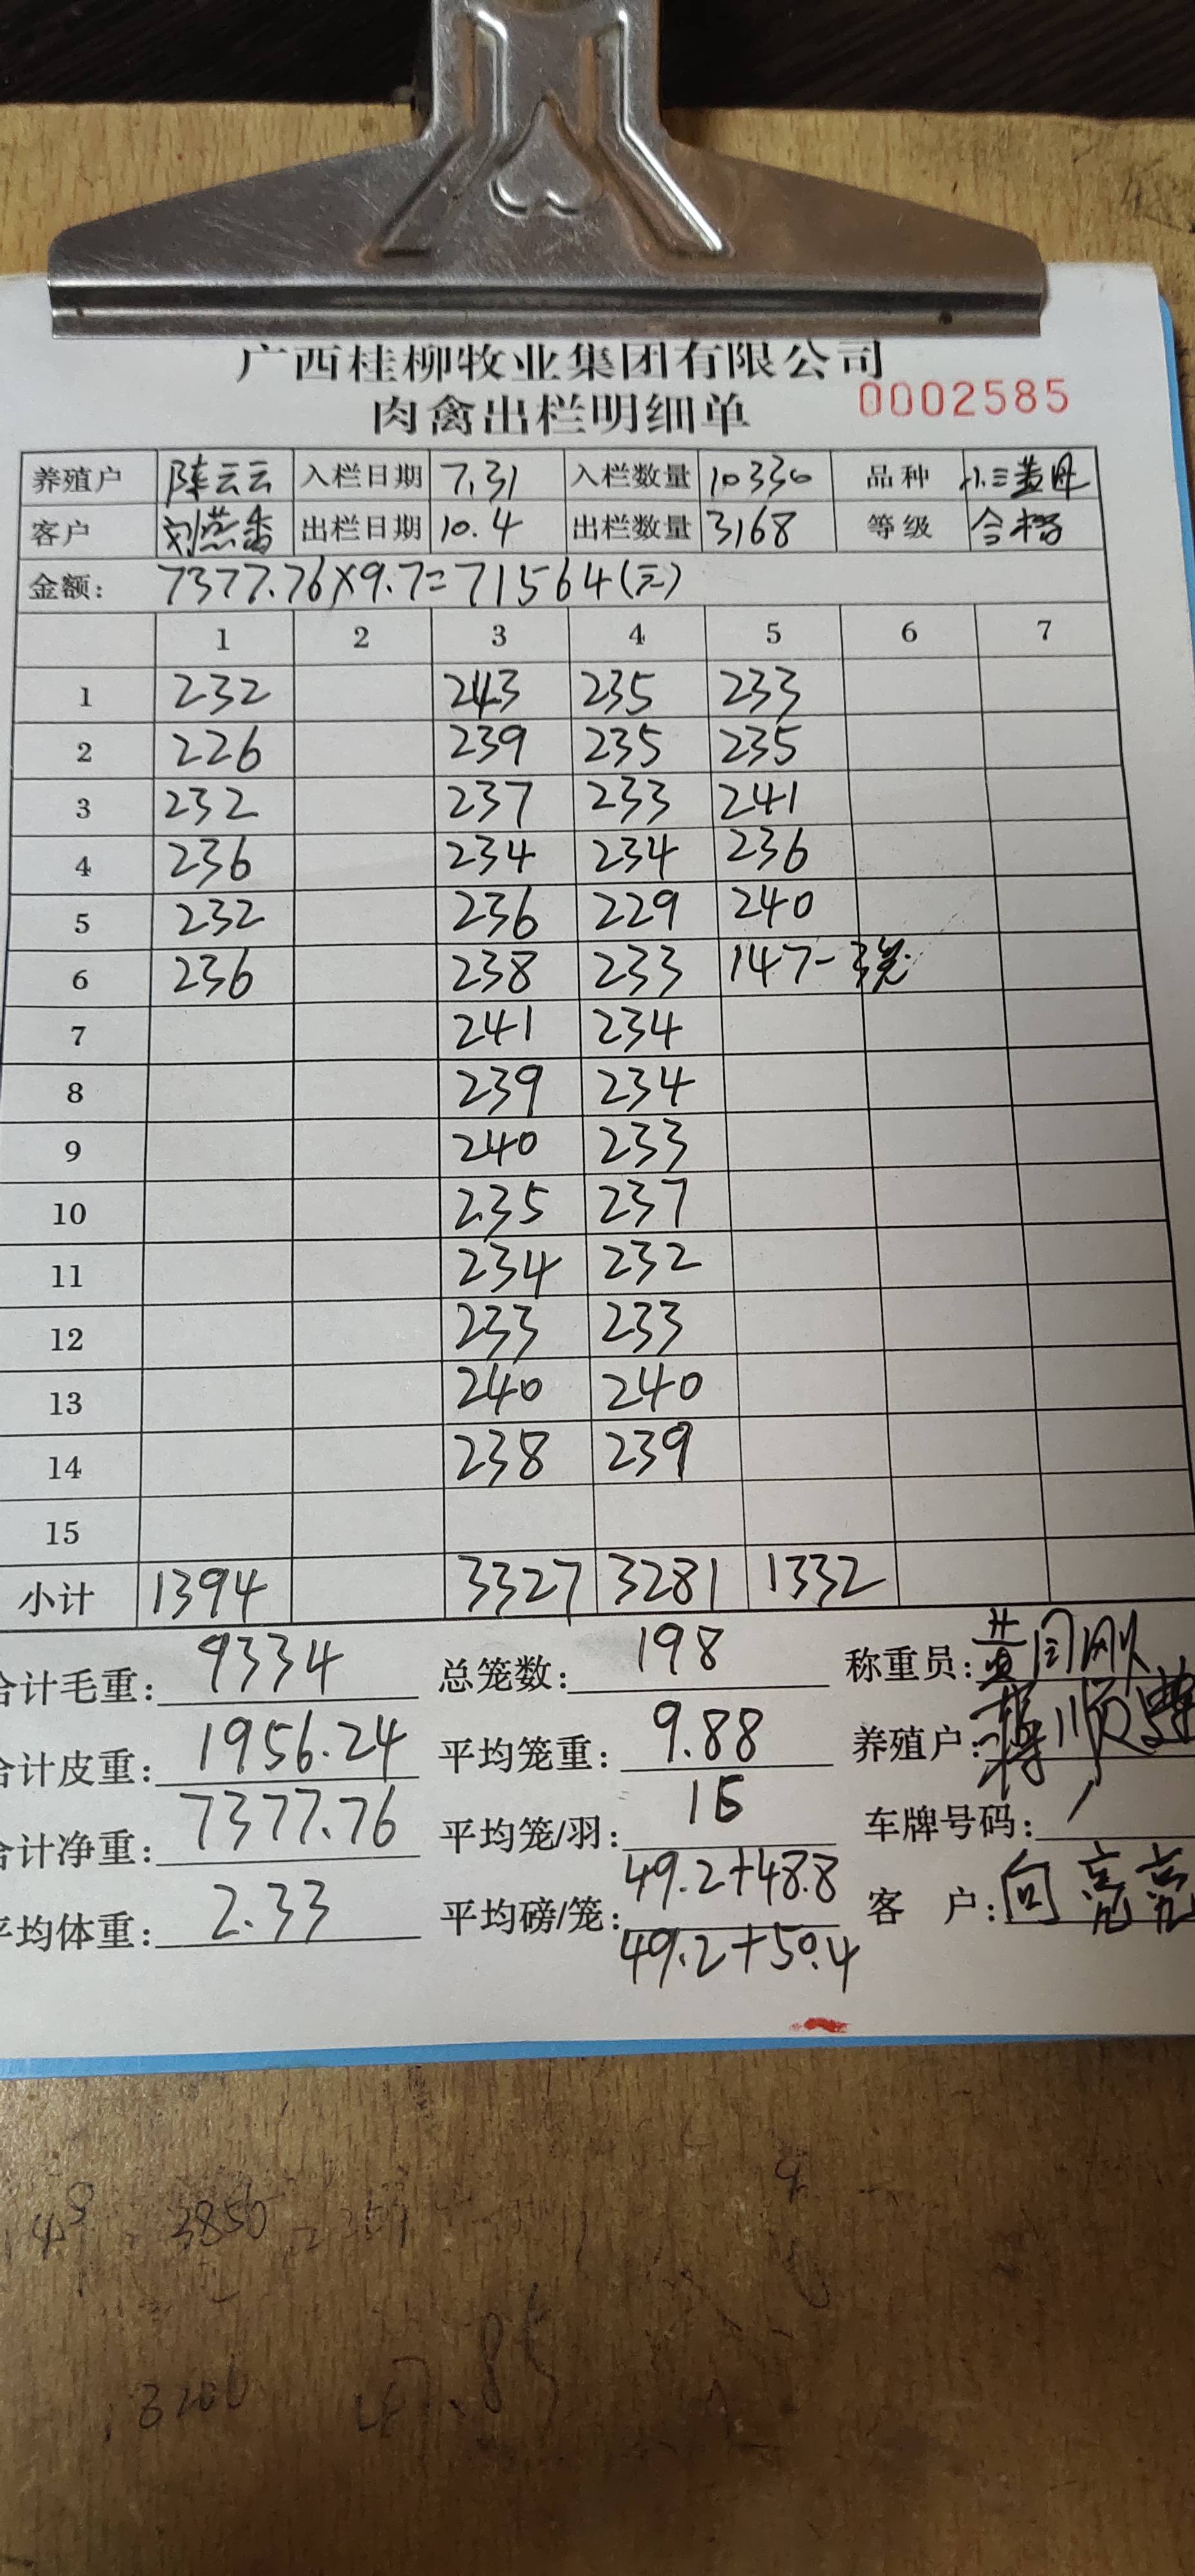 广西桂柳牧业集团有限公司
肉禽出栏明细单 0002585
养殖户 陈云云 入栏日期 7.31 入栏数量 10330 品种
客户 刘燕香 出栏日期 10.4 出栏数量 3168 等级 合格
金额: 7377.76×9.7=71564(元)
1 2 3 4 5 6 7
1 232 243 235 233
2 226 239 235 235
3 232 237 233 241
4 236 234 234 236
5 232 236 229 240
6 236 238 233 147-3笼
7 241 234
8 239 234
9 240 233
10 235 237
11 234 232
12 233 233
13 240 240
14 238 239
15
小计 1394 3327 3281 1332
合计毛重: 9334 总笼数: 198 称重员:
合计皮重: 1956.24 平均笼重: 9.88 养殖户:
合计净重: 7377.76 平均笼/羽: 16 车牌号码: /
平均体重: 2.33 平均磅/笼: 49.2+48.8 客户: 向亮亮
49.2+50.4
3850